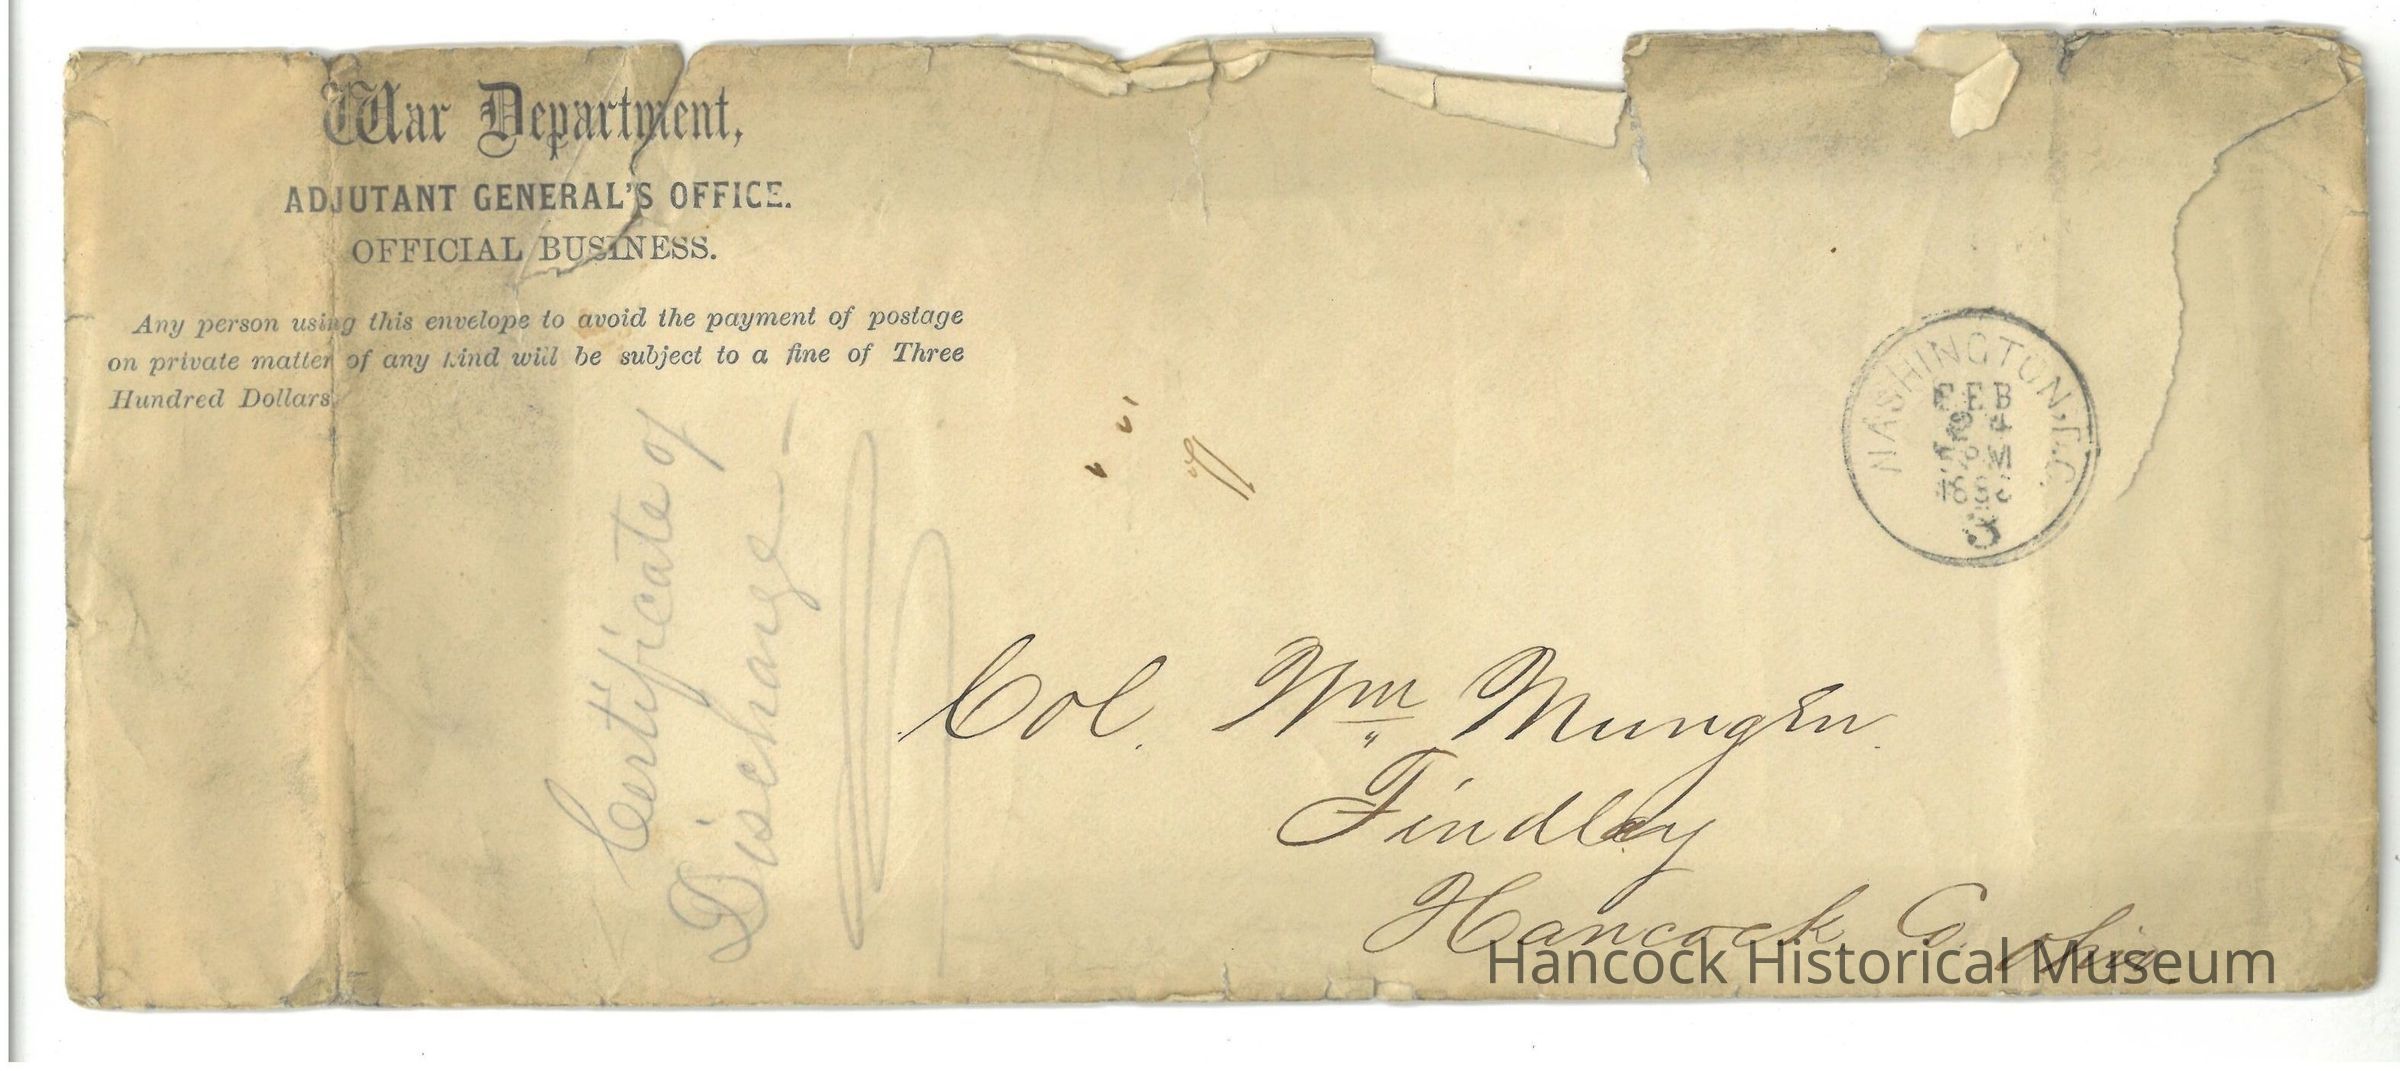 War Department,
ADJUTANT GENERAL'S OFFICE.
OFFICIAL BUSINESS.
Any person using this envelope to avoid the payment of postage
on private matter of any kind will be subject to a fine of Three
Hundred Dollars
WASHINGTON, D.C.
FEB
4
PM
3
Certificate of
Discharge —
Col. Wm Mungen.
Findlay
Hancock Co. Ohio
Hancock Historical Museum